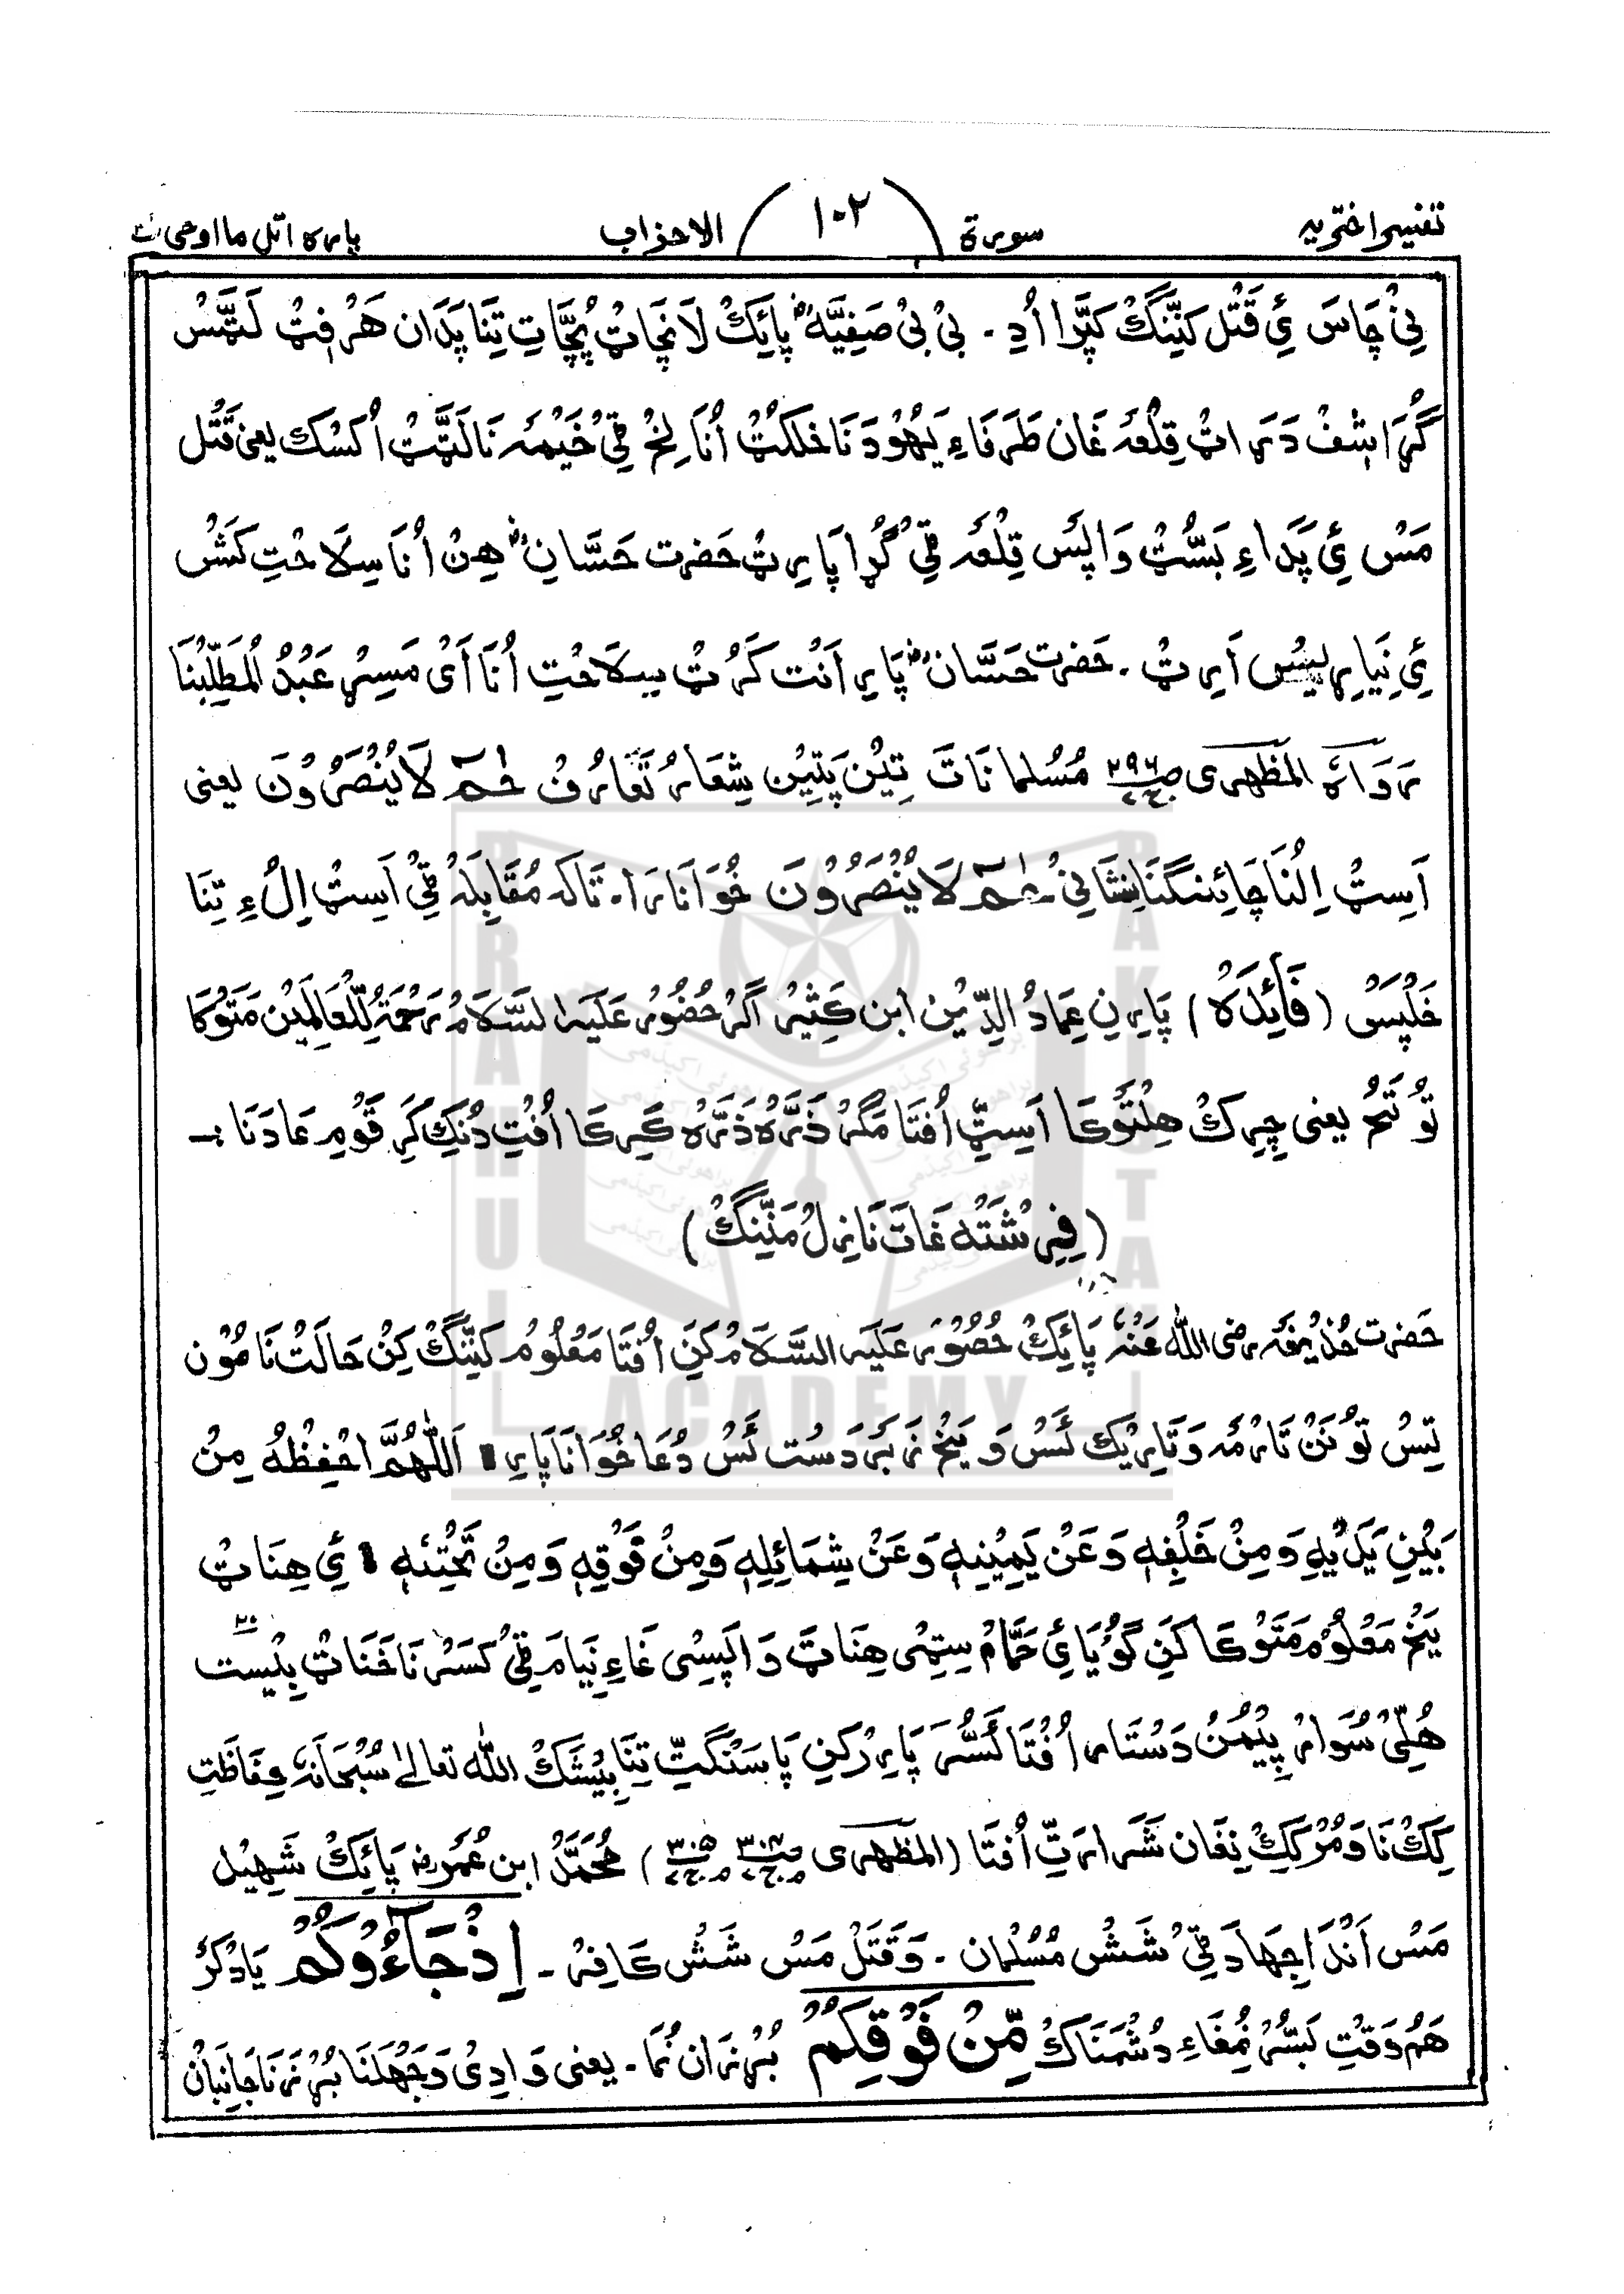 تفسیر اختریہ
سورۃ
۱۰۲
الاحزاب
پارہ اتل ما اوحی
نِیْ چَاسَ ئِ قَتْل کَنِّنگْ کپَّرا اُدِ ۔ بِیْ بِیْ صَفِیَّہؓ پائِکْ لَانچَاٹْ پُچَّاتِ تِنَا پَدَان ھَرْفِٹْ لَٹَّسْ
گُڑَا شِفْ دَرَاٹ قِلْعَہ غَان طَرَفَاءِ یَہُوْدَنَا خلکَٹْ اُنَا لِخْ ٹِیْ خَیْمَہ نَا لَٹَّٹْ اُکَسْک یعنی قَتْل
مَسْ ئِ پَدَاءِ بَسُّٹْ وَاپَسْ قِلْعَہ ٹِیْ گُڑا پَارِٹْ حَضرت حَسَّانِؓ ھِنْ اُنَا سِلَاحْتِ کَشْ
ئِ نِیَارِیْسُ اَرِٹْ ۔ حَضرت حَسَّانؓ پَارِ اَنْت کَرُٹْ سِلَاحْتِ اُنَا اَیْ مَسِڑْ عَبْدُ الْمَطَّلِبْنَا
رَوَاہُ المَظہَری ص ۲۹۶ ج ۷ مُسلمانَاتَ تِیْن پَتِیْن شِعَارُ تَعَارُفْ حٰمٓ لَا یُنْصَرُوْنَ یعنی
اَسِٹْ اِلْنَا چَائِنْنگنَا نِشَانِیْ حٰمٓ لَا یُنْصَرُوْنَ خُوَانَارَا۔ تَاکہ مُقَابِلَہْ ٹِیْ اَسِٹْ اِلْءِ تِنَا
خَلْپَسْ (فَائِدَہْ) پَارِنِ عِمَادُ الدِّیْن ابن کَثِیْر اَگَرْ حُضُوْر عَلَیہ السَّلَامُ رَحْمَۃُ لِّلْعَالَمِیْن مَتَوْکَا
تُوْ تَھُ یعنی چِرِکْ ھِلْتَوْکَا اَسِٹِّ اُفْتَا مَگَرْ ذَرَّہْ ذَرَّہْ کَرِکَا اُفْتِ دُنْکِ کَرِ قَوْمِ عَادَنَا :-
(فِرِشْتَہ غَاتَ نَازِلْ مَنِّنگْ)
حَضرت حُذَیْفَہ رضی اللہ عَنْہُ پَائِکْ حُضُوْر عَلَیہ السَّلَامْ کَنِ اُفْتَا مَعْلُوْم کَنِّنگْ کِنْ حَالَتْنَا مُوْن
تِسْ تُوْ نَنْ تَارْمَہ وَ تَارِیْک ئَسْ وَ یَخْ زَبَرْدَسْت ئَسْ دُعَا خُوَانَا پَارِ اَللّٰھُمَّ احْفِظْہُ مِنْ
بَیْنِ یَدَیْہِ وَ مِنْ خَلْفِہٖ وَ عَنْ یَمِیْنِہٖ وَ عَنْ شِمَائِلِہٖ وَ مِنْ فَوْقِہٖ وَ مِنْ تَحْتِہٖ ئِ ھِنَاٹْ
یَخْ مَعْلُوْم مَتَوْکَا کَنِ گُوْیَا ئِ حَمَّامْ سِٹِی ھِنَاٹَ وَاپَسِی غَاءِ نِیَامْ ٹِیْ کَسَرْنَا خَنَاٹْ بِیْست ۲۰
ھُلِّیْ سُوَارْ پِیْھُنْ دَسْتَار اُفْتَا ئَسُّرَ پَارِرْ کَنِ پَا سَنْگتِّ تِنَا بیْشَکْ اللہ تعالیٰ سُبْحَانَہٗ حِفَاظَتِ
کِکْ نَا وَ مُرْکِکْ نِفَان شَرَارَتِّ اُفْتَا (المَظْہَری ص ۳۰۴ ج ۷ ص ۳۰۵ ج ۷) مُحَمَّدُ ابن عُمَرؓ پَائِکْ شَھِیْد
مَسْ اَنْدَا جِھَادَ ٹِیْ شَشْ مُسْلمان ۔ وَ قَتَلْ مَسْ شَشْ کَافِرْ ۔ اِذْ جَآءُوْکُمْ یَاد کَرْ
ھَمْ وَقْتِ بَسُّرْ نُمْغَاءِ دُشْمَنَاکْ مِّنْ فَوْقِکُمْ بُرْزَان نُمَا ۔ یعنی وَادِیْ وَ جَھْلنَا بُرْزَنَا جَانِبَانْ
BRAHUI
ACADEMY
PAKISTAN